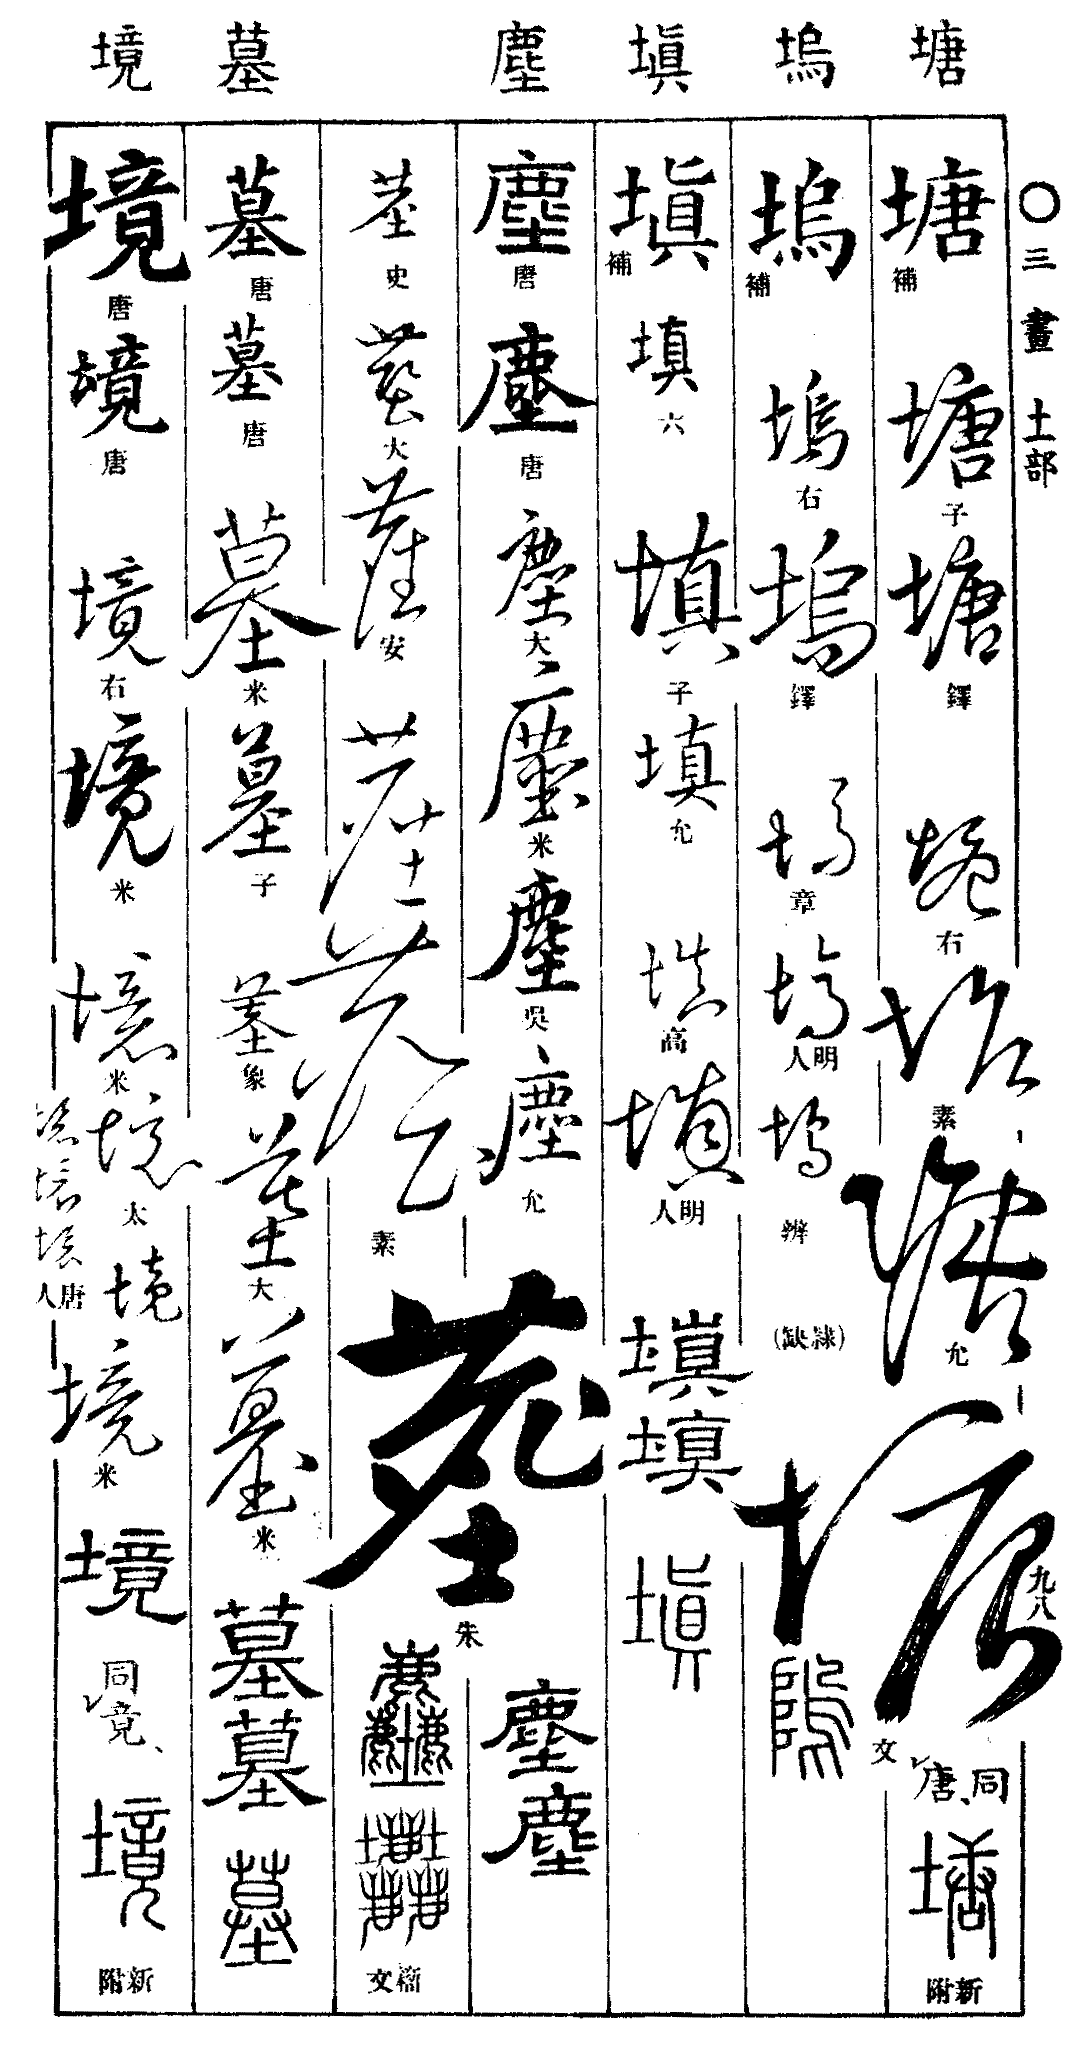 塘 塢 塡 塵 墓 境
〇三畫 土部
九八
塘 補
塘 子
塘 鐸
塘 右
塘 素
塘 允
塘 文
同唐、
塘 新附
塢 補
塢 右
塢 鐸
塢 章
塢 明人
塢 辨
(隷缺)
塢
塡 補
塡 六
塡 子
塡 允
塡 高
塡 明人
塡
塡
塡
塵 唐
塵 唐
塵 大
塵 米
塵 吳
塵 允
塵
塵
塵 史
塵 大
塵 安
塵
塵 素
塵 朱
塵
塵 籀文
墓 唐
墓 唐
墓 米
墓 子
墓 象
墓 大
墓 米
墓
墓
墓
境 唐
境 唐
境 右
境 米
境 米
境 太
境 境 境 唐人
境
境 米
境
同竟、
境 新附